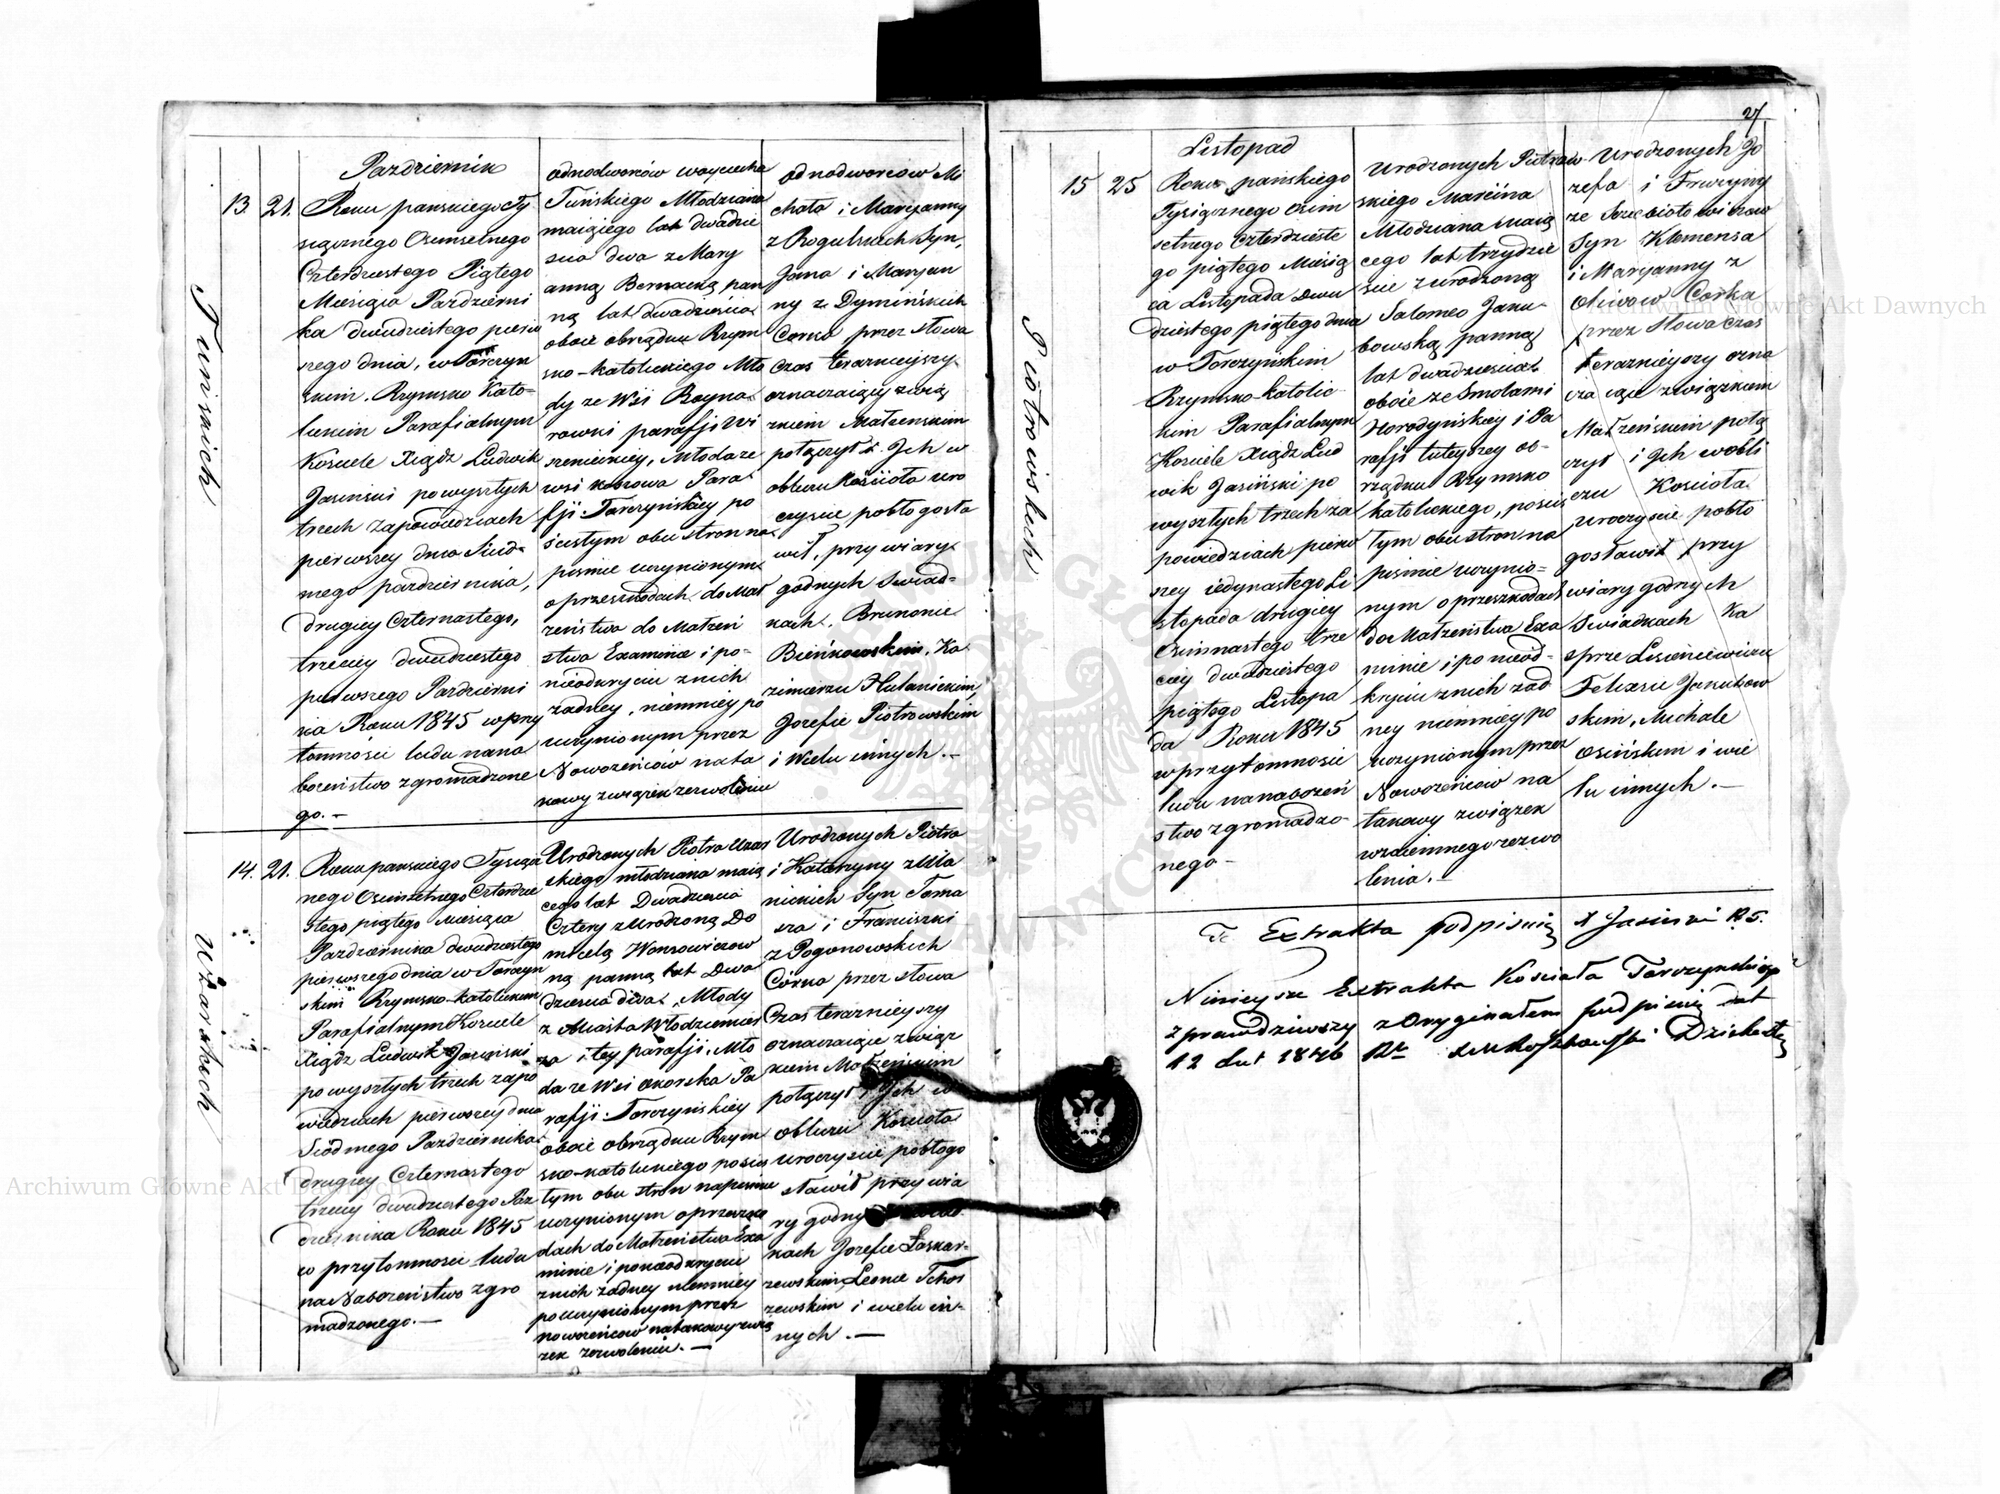 Pazdziernik
Tunskich
13. 21.
Roku panskiego Ty
siącznego Osimsetnego
Czterdziestego Piątego
Miesiąca Pazdzierni
ka dwudziestego pierw
szego dnia, w Torczyn
skim Rzymsko Kato-
lickim Parafialnym
Kosciele Xiądz Ludwik
Jasinski po wyszłych
trzech zapowiedziach
pierwszey dnia Siód
mego pazdziernika,
drugiey Czternastego,
trzeciey dwudziestego
pierwszego Pazdzierni
ka Roku 1845 w przy
tomnosci ludu na na
bozeństwo zgromadzone
go. –
odnodworców Woyciecha
Tuńskiego Młodziana
maiącego lat dwadzie
scia dwa z Mary
anną Bernacką pan
ną lat dwadzieścia
oboie obrządku Rzym
sko-katolickiego Mło
dy ze Wsi
rowki parafji Wi
szenieckiey, Młoda ze
wsi Para
fji Torczyńskiey po
ścisłym obu stron na
pismie uczynionym
o przeszkodach do Mał
żeństwa do Małzeń
stwa Examinie i po-
nieodkryciu z nich
żadney, niemniey po
uczynionym przez
Nowożeńców na ta
kowy związek zezwoleniu
odnodworców Mi
chała i Maryanny
z Rogulskich Syn,
Jana i Maryan
ny z Dymińskich
Corkę przez słowa
czas teraznieyszy
oznaczaiący zwią
zkiem Małzenskim
połączył i Ich w
obliczu Kościoła uro
czyscie pobłogosła
wił, przy wiary
godnych Swiad-
kach, Brunonie
Bieńkowskim, Ka
zimierzu Hulanickim,
Jozefie Piotrowskim
i Wielu innych. –
Użarskich
14. 21.
Roku panskiego Tysiącz
nego Osimsetnego Czterdzie
stego piątego Miesiąca
Pazdziernika dwudziestego
pierwszego dnia w Torczyn
skim Rzymsko-katolickim
Parafialnym Kosciele
Xiądz Ludwik Jasinski
po wyszłych trzech zapo
wiedziach pierwszey dnia
Siódmego Pazdziernika
drugiey Czternastego
trzeciey dwudziestego Paz
dziernika Roku 1845
w przytomnosci ludu
na Nabozeństwo zgro
madzonego. –
Urodzonych Piotra Uzar
skiego młodziana maią
cego lat Dwadziescia
Cztery z Urodzoną Do
micelą
ną panną lat Dwa
dziescia dwa, Młody
z Miasta Włodzimierz
za i tey parafji, Mło
da ze Wsi Okorska Pa
rafji Torczyńskiey
oboie obrządku Rzym
sko-katolickiego poscis
łym obu stron na pismie
uczynionym o przeszko
dach do Małżeństwa Exa
minie i ponieodkryciu
znich żadney niemniey
po uczynionym przez
nowożeńców na takowy zwią
zek zezwoleniu. –
Urodzonych Piotra
i Katarzyny z Ula
nickich Syn Toma
sza i Franciszki
z Pogonowskich
Córka przez słowa
Czas teraznieyszy
oznaczaiące związ
kiem Małżeńskim
połączył i Ich w
obliczu Koscioła
uroczyscie pobłogo
sławił przy wia
ry godny
kach Jozefie Łaskar-
zewskim, Leonie
zewskim i wielu in-
nych. –
27
Listopad
Piotrowskich
15 25
Roku pańskiego
Tysiącznego Osim
setnego Czterdzieste
go piątego Miesią
ca Listopada Dwu
dziestego piątego dnia
w Torczyńskim
Rzymsko-katolic
kim Parafialnym
Kosciele Xiądz Lud
wik Jasiński po
wyszłych trzech za
powiedziach pierw
szey iedynastego Li
stopada drugiey
Osimnastego trze
ciey dwudziestego
piątego Listopa
da Roku 1845
w przytomnosci
ludu na nabożeń
stwo zgromadzo-
nego –
Urodzonych Piotrow-
skiego Marcina
Młodziana maią
cego lat trzydzie
scie z urodzoną
Salomeą Jaku-
bowską panną
lat dwadziescia
oboie ze Smolami
Horodyńskiey i Pa
rafji tuteyszey ob-
rządku Rzymsko
katolickiego, poscis
łym obu stron na
pismie uczynio-
nym o przeszkodach
do Małżeństwa Exa
minie i po nieod-
kryciu znich żad
ney niemniey po
uczynionym przez
Nowożeńców na
takowy związek
wzaiemnego zezwo
lenia. –
Urodzonych Jo
zefa i Fruzyny
ze Szczebiotowiczow
Syn Klemensa
i Maryanny z
Oliwow Corka
przez Słowa czas
teraznieyszy ozna
czaiące związkiem
Małżeńskim połą
czył i Ich wobli
czu Kościoła
uroczyscie pobło
gosławił przy
wiary godnych
Swiadkach Ka
sprze Lisieniewiczu
Felixsie Jakubow
skim, Michale
Osińskim i wie
lu innych. –
Te Extrakta podpisuię X Jasinski
Ninieysze Extrakta Kościoła Torczynskiego
z prawdziwszy z Oryginałem podpisuię dat
12 Lut 1846 Rk
Archiwum Główne Akt Dawnych
Archiwum Główne Akt Dawnych